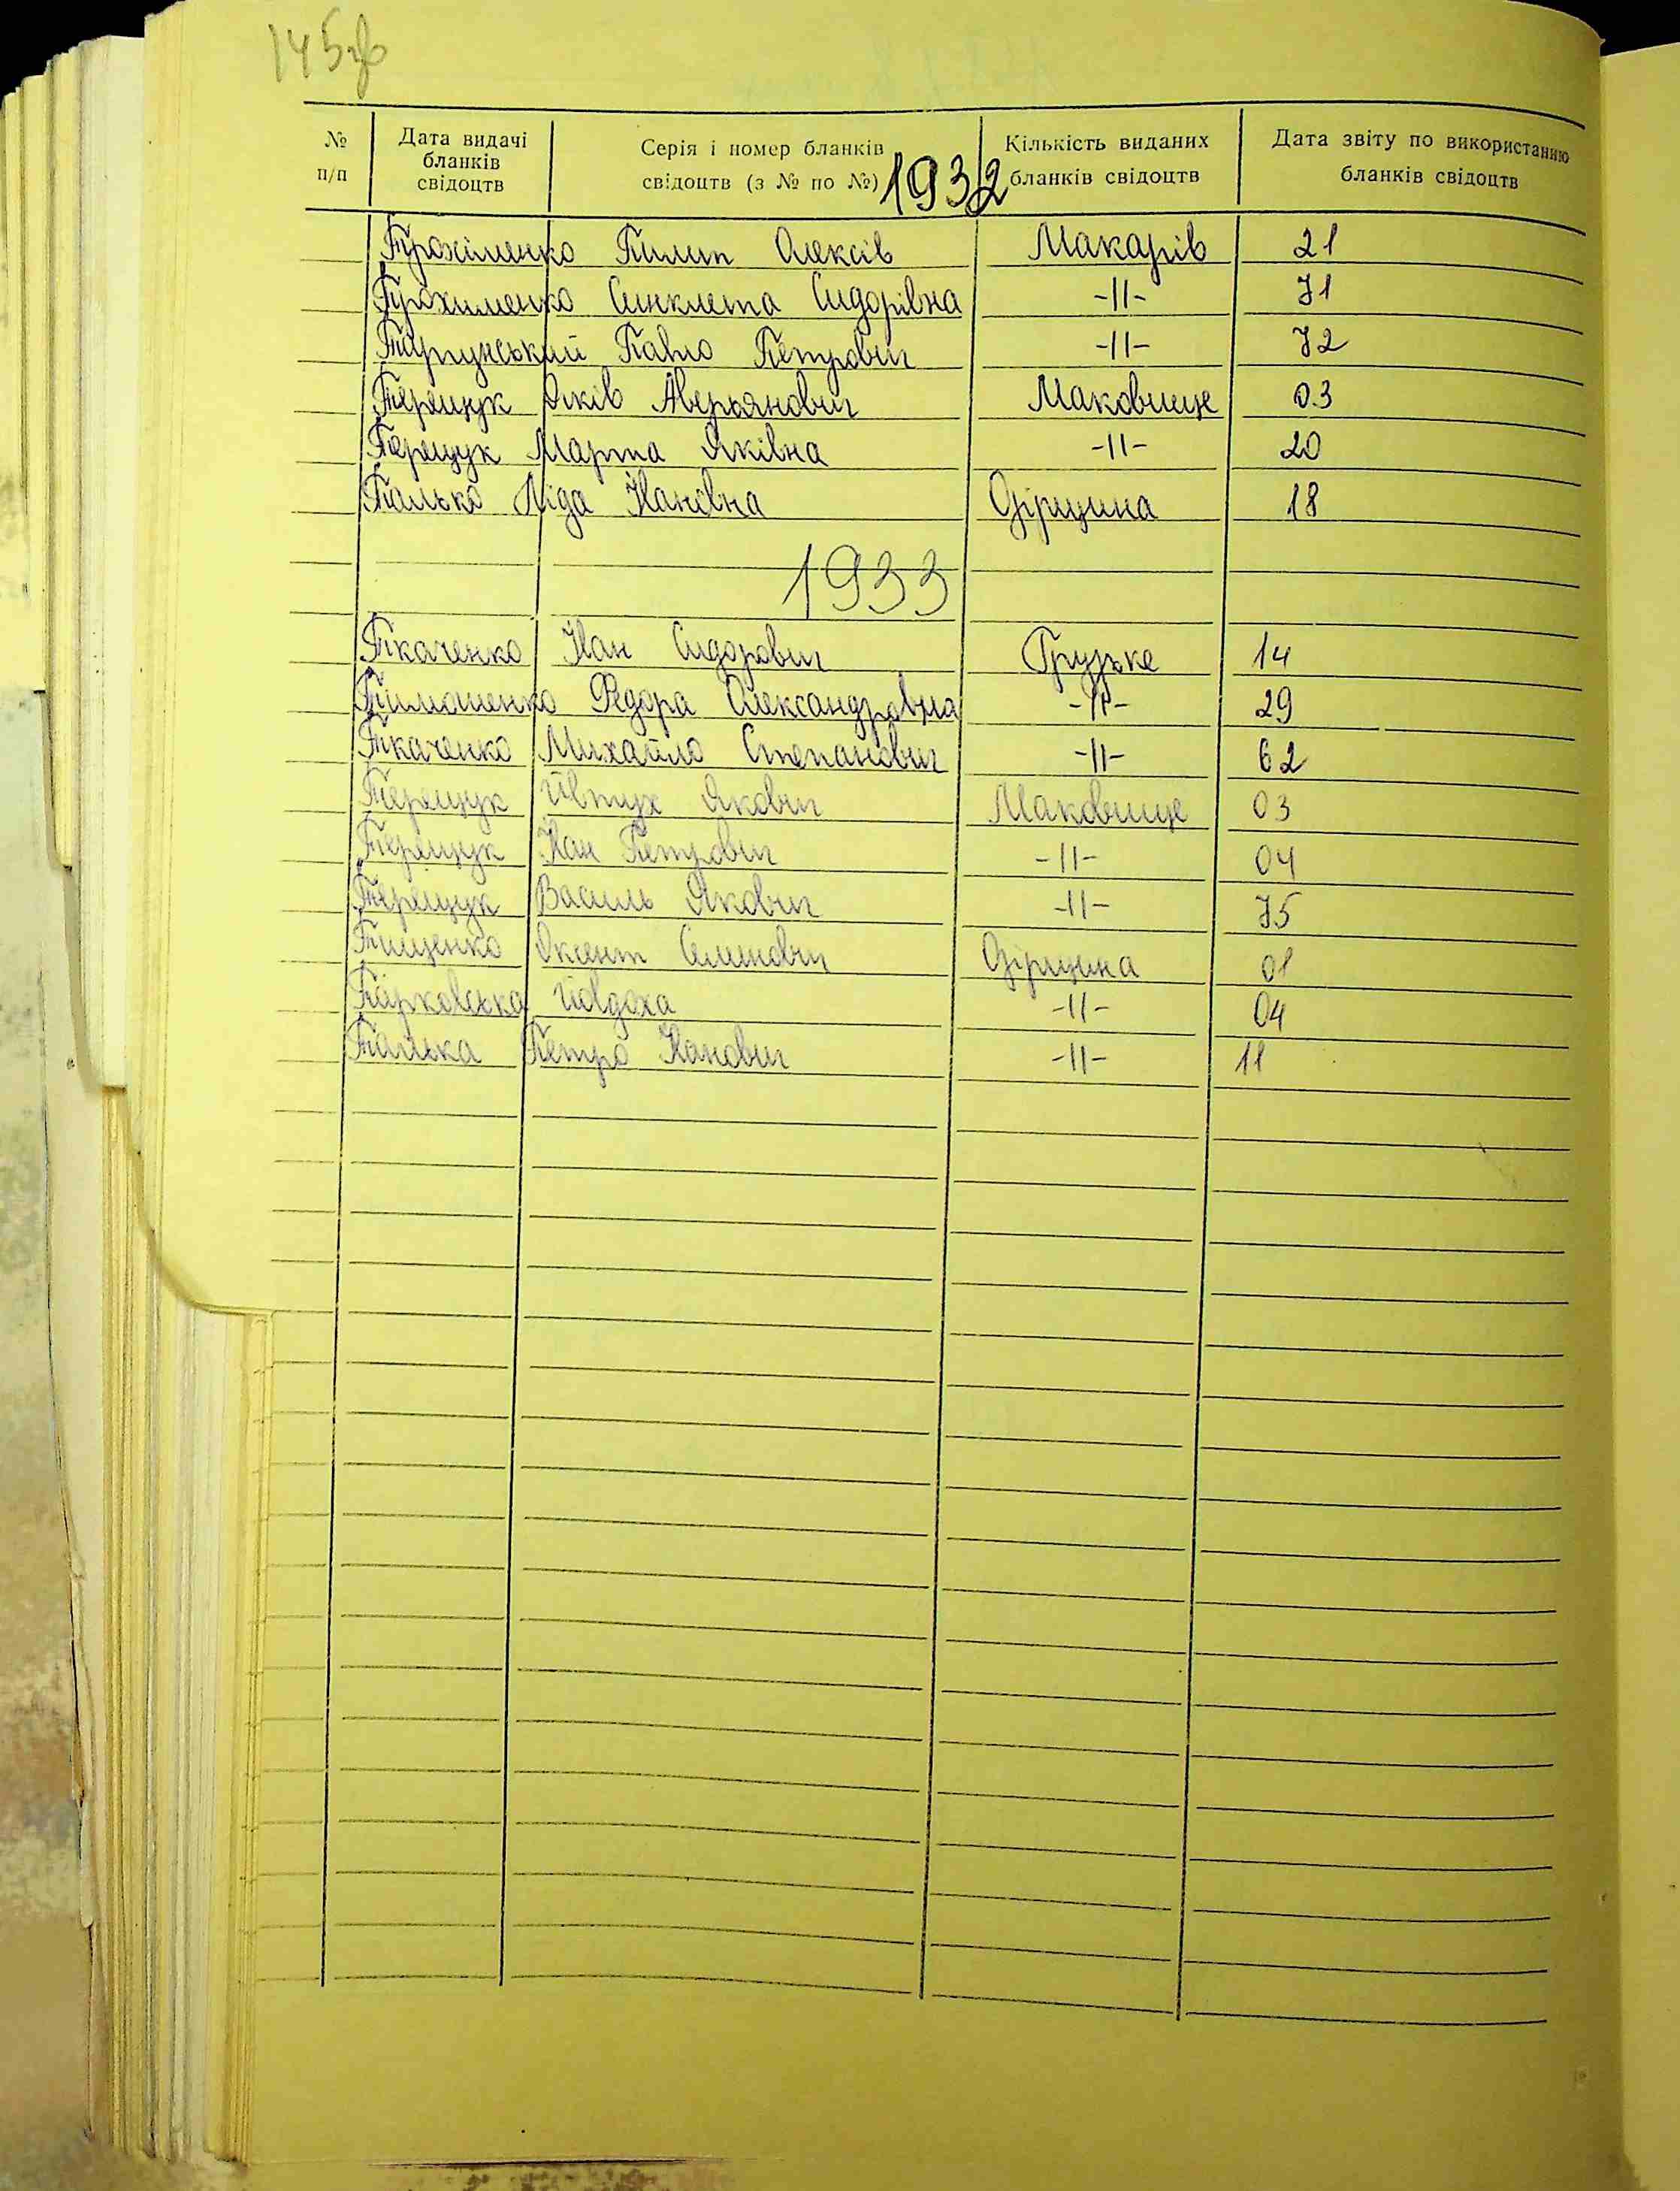 145зв
№ п/п Дата видачі бланків свідоцтв Серія і номер бланків свідоцтв (з № по №) Кількість виданих бланків свідоцтв Дата звіту по використанню бланків свідоцтв
1932
Трохіменко Пилип Олексів Макарів 21
Трохименко Синклета Сидорівна -||- 71
Павло Петрович -||- 72
Терещук Яків Аверьянович Маковище 03
Терещук Марта Яківна -||- 20
Талько Ліда Іванівна 18
1933
Ткаченко Іван Сидорович Грузьке 14
Тимошенко Федора Олександрівна -||- 29
Ткаченко Михайло Степанович -||- 62
Терещук Явтух Якович Маковище 03
Терещук Іван Петрович -||- 04
Терещук Василь Якович -||- 75
Тищенко Оксент Семенович 01
Тарковська Йовдоха -||- 04
Талька Петро Іванович -||- 11